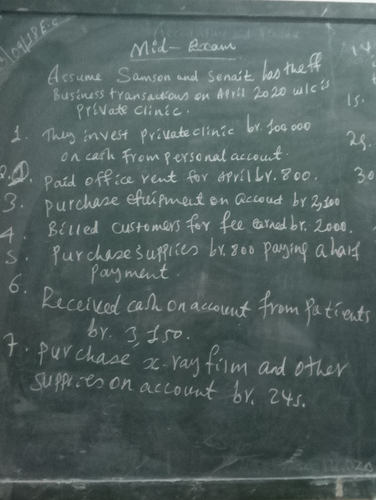 Mid-Exam
Assume Samson and Senait has the ff
Business transactions on April 2020 w/c is
private clinic.
1. They invest private clinic br. 100000
on cash from personal account.
2. paid office rent for April br. 800.
3. purchase equipment on account br 2,100
4. Billed customers for fee earned br. 2000.
5. purchase supplies br. 800 paying a half
payment.
6. Received cash on account from patients
br. 3,150.
7. purchase x-ray film and other
supplies on account br. 245.
14.
15.
25.
30